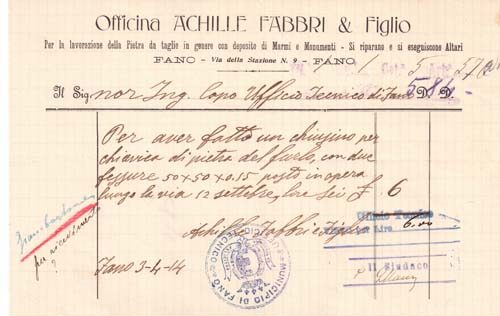 Officina ACHILLE FABBRI & Figlio
Per la lavorazione della Pietra da taglio in genere con deposito di Marmi e Monumenti - Si riparano e si eseguiscono Altari
FANO - Via della Stazione N. 9 - FANO
584
Il Signor Ing. Capo Ufficio Tecnico di Fano D. D.
Per aver fatto un chiusino per
chiavica di pietra del furlo, con due
fessure 50 x 50 x 0.15 posto in opera
lungo la via 12 settembre, lire sei £ 6
Achille Fabbri e Figlio
Ufficio Tecnico
per Lire 6.00
Il Sindaco
Fano 3-4-14
MUNICIPIO DI FANO
UFFICIO TECNICO
per